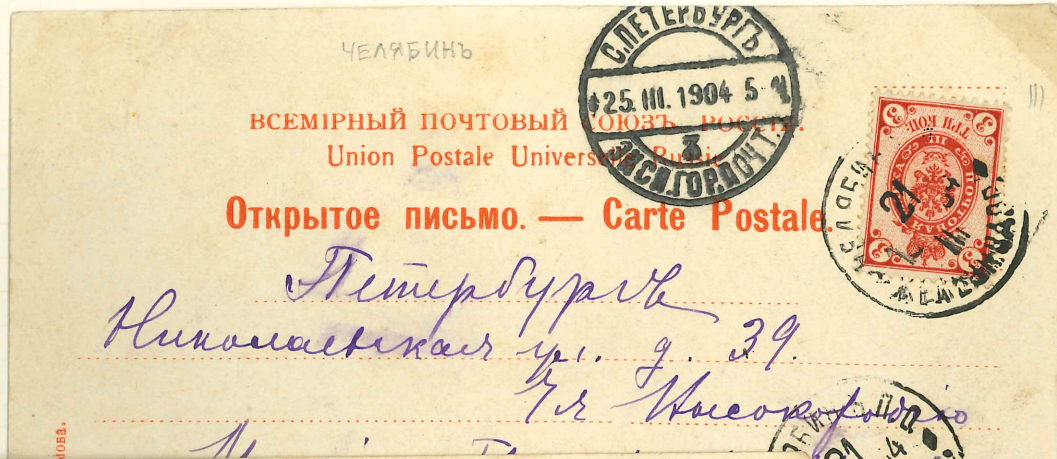 ЧЕЛЯБИНЪ
С.ПЕТЕРБУРГЪ
25.III.1904 5
3
ЭКСП.ГОР.ПОЧТ.
ВСЕМІРНЫЙ ПОЧТОВЫЙ СОЮЗЪ. РОССІЯ.
Union Postale Universelle Russie
Открытое письмо. — Carte Postale.
3 ТРИ КОП. 3
21
III
Петербургъ
Николаевская ул. д. 39.
Высокородію
21